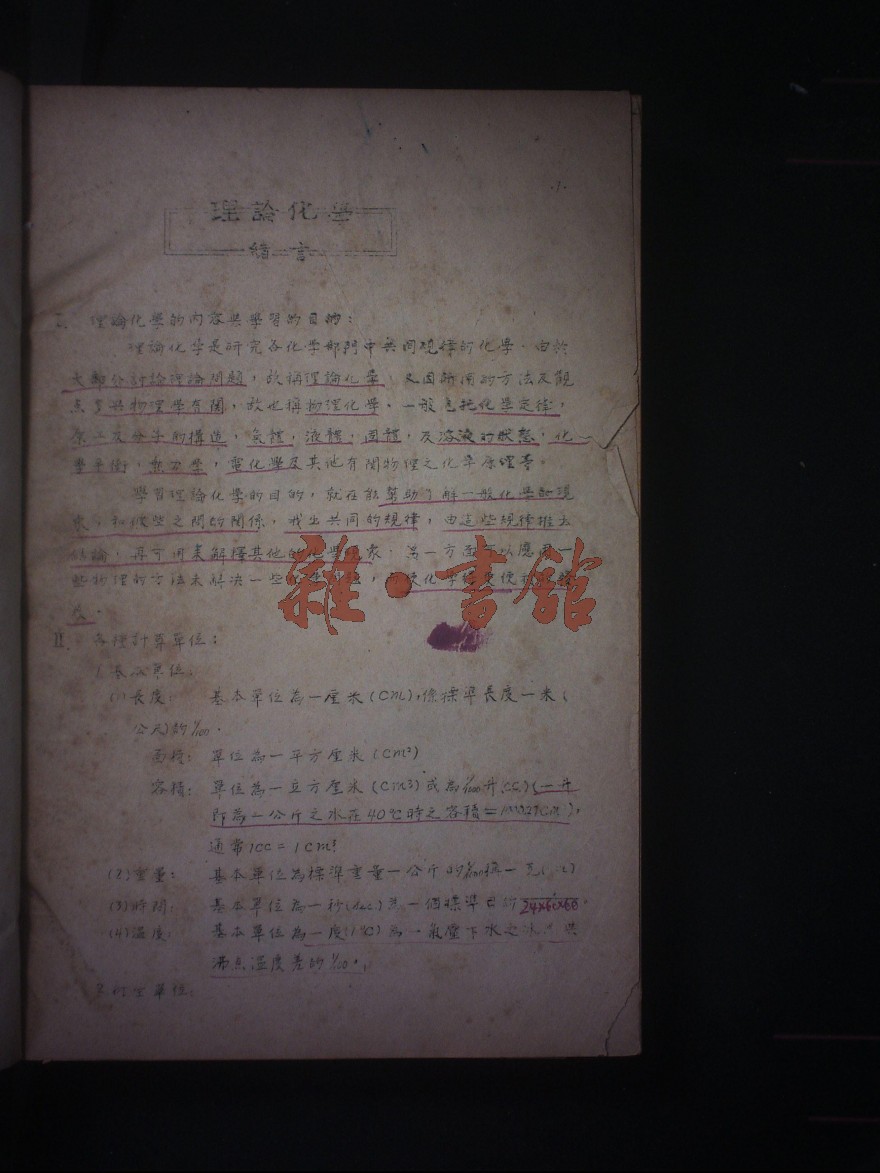 ·1·
理論化學
緒言
I. 理論化學的內容與學習的目的：
理論化學是研究各化學部門中共同規律的化學．由於
大部分討論理論問題，故稱理論化學，又因所用的方法及觀
点多與物理學有關，故也稱物理化學．一般包括化學定律，
原子及分子的構造，氣體，液體，固體，及溶液的狀態，化
學平衡，熱力學，電化學及其他有關物理之化學原理等。
學習理論化學的目的，就在能幫助了解一般化學的現
象，和彼些之間的關係，找出共同的規律，由這些規律推去
結論，再可用来解釋其他的化學現象．另一方面可以應用一
些物理的方法来解決一些化學，而使化學更便
II. 各種計算單位：
1.基本單位：
(1)長度： 基本單位為一厘米(Cm)，係標準長度一米(
公尺)的1/100．
面積： 單位為一平方厘米(Cm²)
容積： 單位為一立方厘米(Cm3)或為1/1000升(CC)(一升
即為一公斤之水在40℃時之容積=1000.27Cm)，
通常1CC=1Cm³
(2)重量： 基本單位為標準重量一公斤的1/1000稱一克
(3)時間： 基本單位為一秒(sec)為一個標準日的 24x60x60．
(4)溫度： 基本單位為一度(1℃)為一氣壓下水之冰点與
沸点溫度差的1/100．
2.衍生單位：
雜·書館